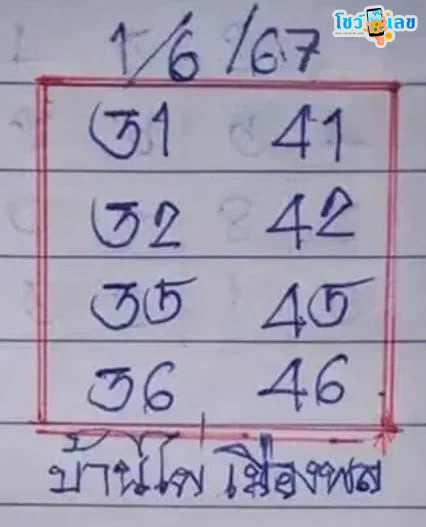 โชว์เลข
1/6/67
31 41
32 42
35 45
36 46
บ้านไผ่ เมืองพล